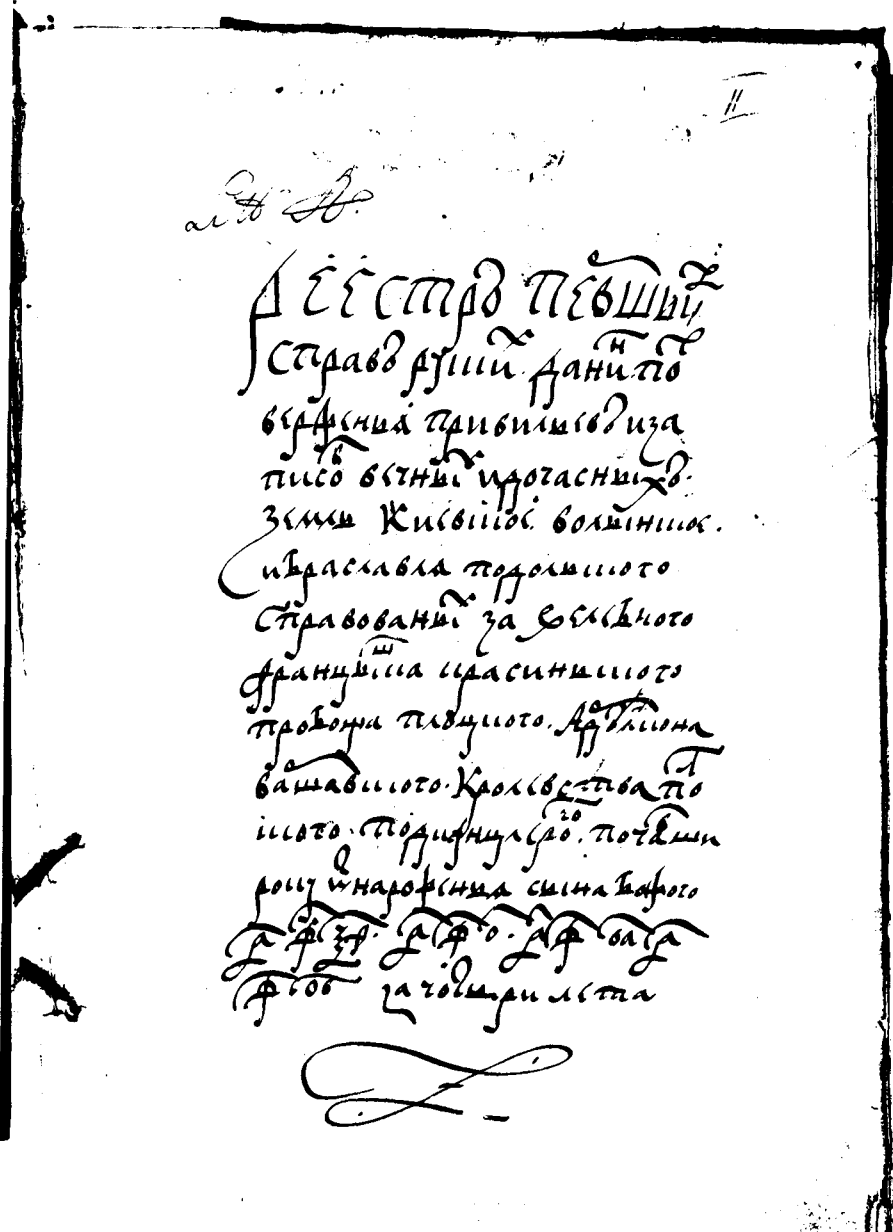 II
Реестръ певныхъ
справъ руских данин по
вержень я привильевъ и за
писов вечных и дочасныхъ.
Земль Киевское волынское.
и браславля подольского
справованых за вельбного
Францышка красиньского
пробоща плоцкого. Арцыдиякона
варшавского. Кролевства пол
ского. подканцлерого. почавши
року ѿ нарожень я сына Божого
҂афѯѳ. ҂афо. ҂афоа ҂а
фов за чотыри лета